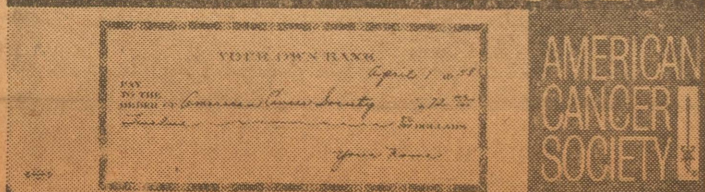 YOUR OWN BANK
April 1 1958
PAY
TO THE
ORDER OF American Cancer Society $12 00
Twelve DOLLARS
Your Name
AMERICAN
CANCER
SOCIETY